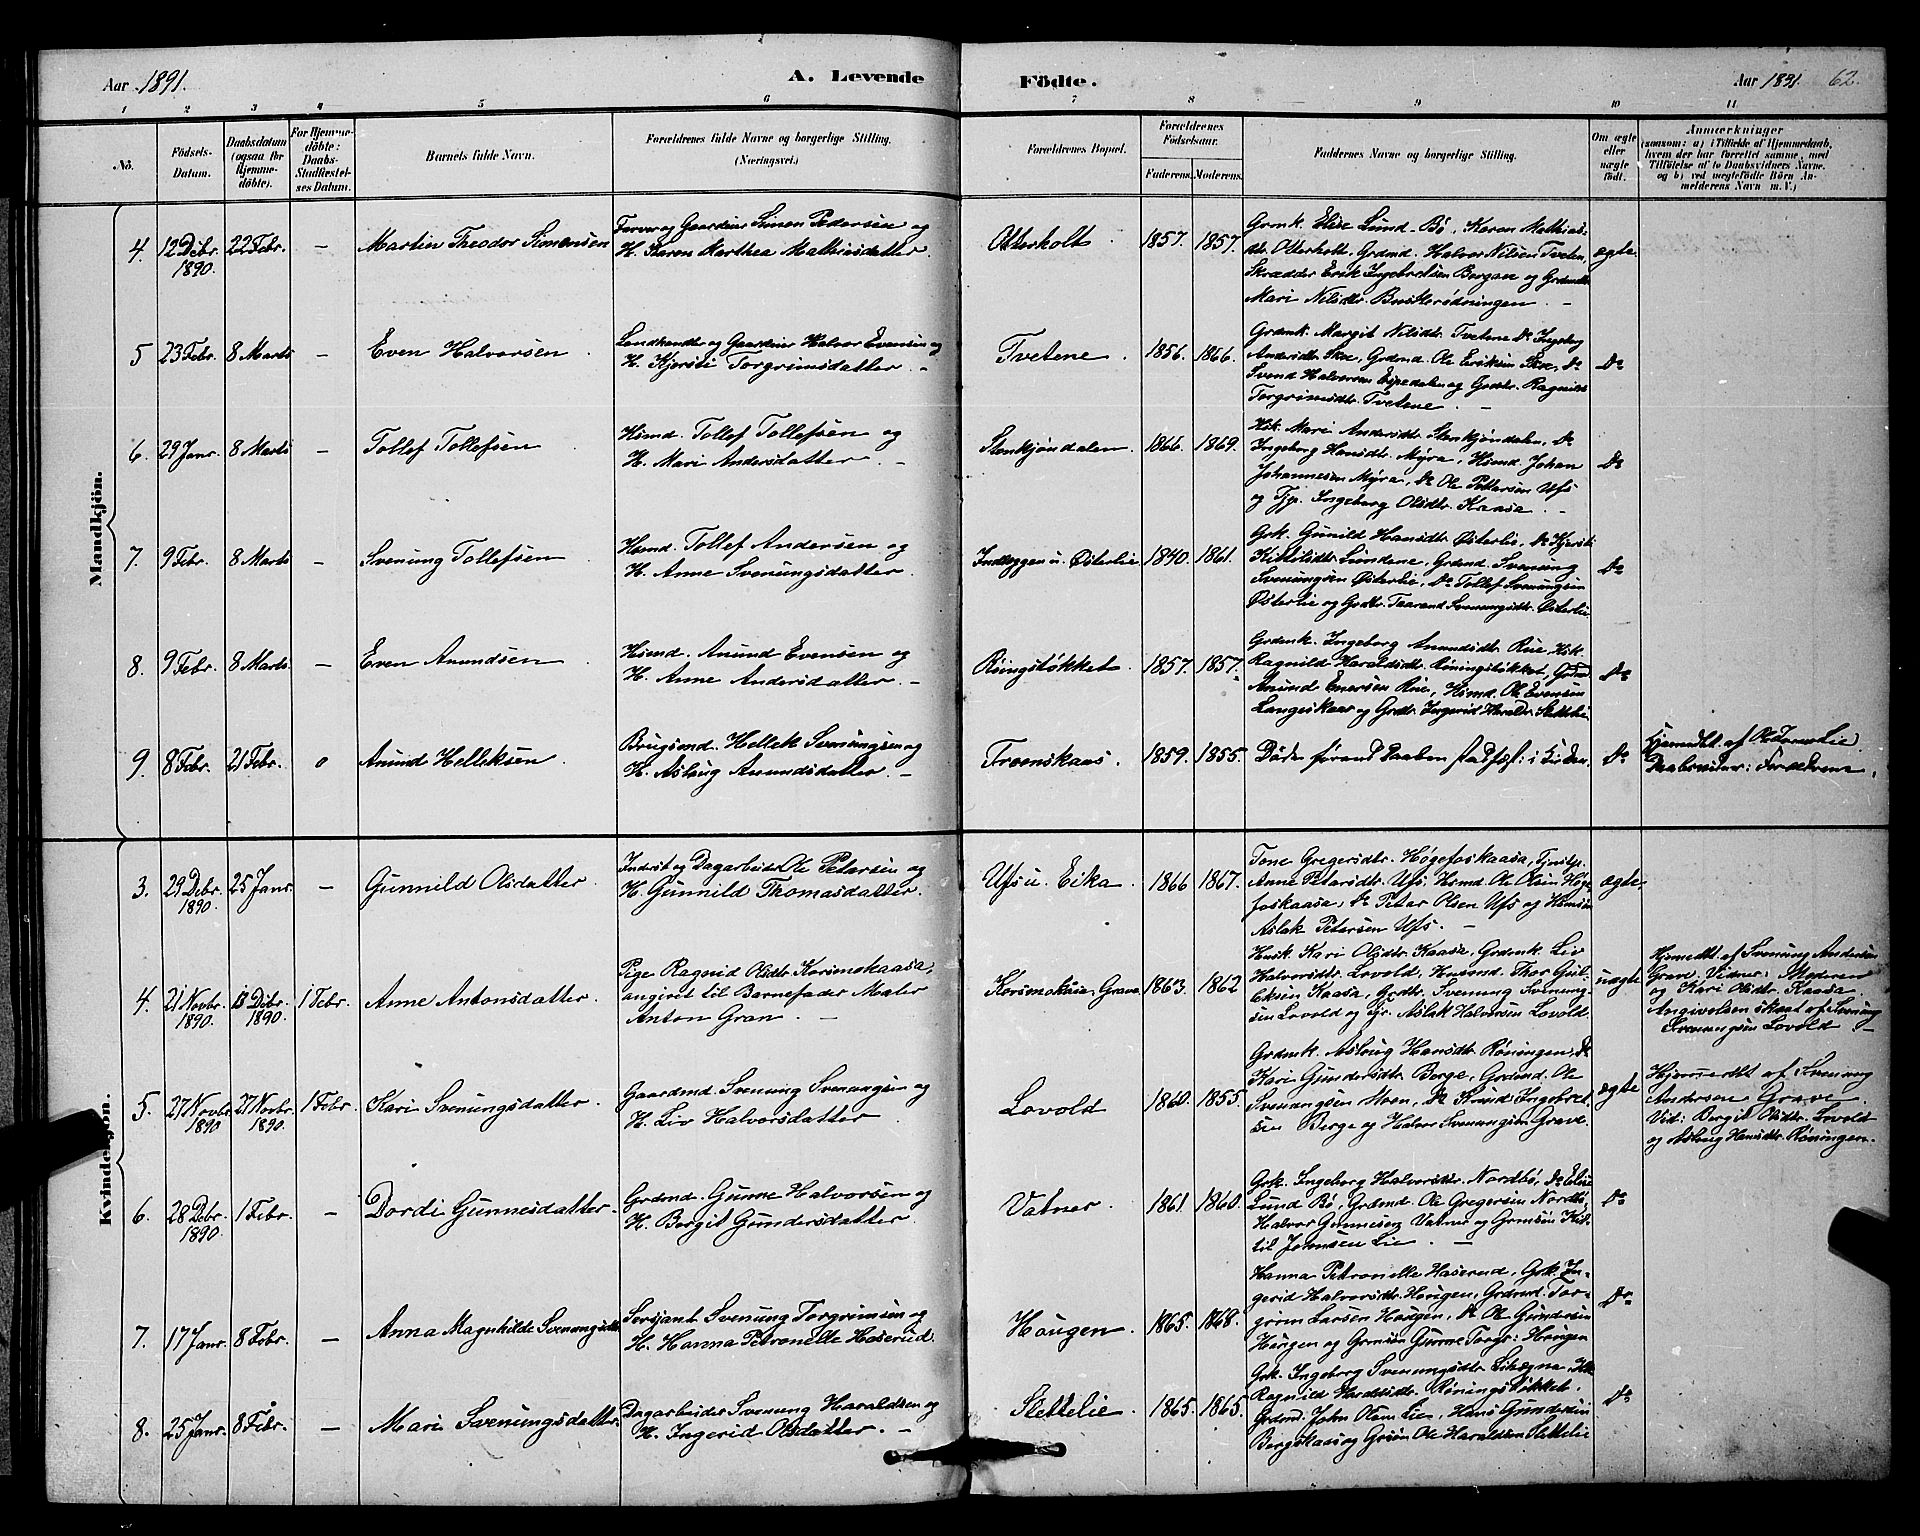 Aar 1891.
A. Levende
Födte.
Aar 1891. 62.
1 2 3 4 5 6 7 8 9 10 11
No.
Födsels-
Datum.
Daabsdatum
(ogsaa for
Hjemme-
döbte).
For Hjemme-
döbte:
Daabs-
Stadfæstel-
ses Datum.
Barnets fulde Navn.
Forældrenes fulde Navne og borgerlige Stilling.
(Næringsvei.)
Forældrenes Bopæl.
Forældrenes
Födselsaar.
Faderens. Moderens.
Faddernes Navne og borgerlige Stilling.
Om ægte
eller
uægte
födt.
Anmærkninger
(saasom: a) i Tilfælde af Hjemmedaab,
hvem der har forrettet samme, med
Tilföielse af to Daabsvidners Navne,
og b) ved uægtefödte Börn An-
melderens Navn m. V.)
Mandkjön.
4. 12 Debr. 1890 22 Febr. — Martin Theodor Simonsen
Farver og Gaardeier Simon Pedersen og
H. Karen Marthea Mathiasdatter.
Otterholt. 1857. 1857.
Grmk. Elise Lund Bö, Karen Mathias-
dtr. Otterholt, Grdmd. Halvor Nilsen Tveten,
Skrædder Erik Ingebretsen Borgen og
Mari Nilsdtr. —
ægte.
5 23 Febr. 8 Marts — Even Halvorsen.
Landhandler og Gaardeier Halvor Evensen og
H. Kjersti Torgrimsdatter. —
Tvetene. 1856. 1866.
Grdmk. Margit Nilsdtr. Tvetene, Do Ingeborg
Andersdtr. Skoe, Grdmd. Ole Eriksen Skoe, Do
Svend Halvorsen Espedalen og Grdtr. Ragnild
Torgrimsdtr. Tvetene. —
Do
6. 29 Janr. 8 Marts — Tollef Tollefsen
Hsmd. Tollef Tollefsen og
H. Mari Andersdatter. —
Stenkjøndalen. 1866. 1869.
Hsk. Mari Andersdtr. Stenkjøndalen, Do
Ingeborg Hansdtr. Myra, Hsmd. Johan
Johannesen Myra, Do Ole Pettersen Ufs
og Tjp. Ingeborg Olsdtr. Kaasa. —
Do
7. 9 Febr. 8 Marts — Svenung Tollefsen
Hsmd. Tollef Andersen og
H. Anne Svenungsdatter.
Indlæggen u. Østerlie. 1840. 1861.
Grk. Gunild Hansdtr. Østerlie, Do Kjersti
Kittilsdtr. Lundene, Grdmd. Svenung
Svenungsen Østerlie, Do Tollef Svenungsen
Østerlie og Grdtr. Taarand Svenungsdtr. Østerlie
Do
8. 9 Febr. 8 Marts. — Even Anundsen
Hsmd. Anund Evensen og
H. Anne Andersdatter. —
Röingstøkket. 1857. 1857.
Grdmk. Ingeborg Anundsdtr. Rue, Hsk.
Ragnild Haraldsdtr. Röningstøkket, Grdmd
Anund Enersen Rue, Hsmd. Ole Evensen
Langeskaar og Grdtr. Ingerid Haraldsdtr. Slettelie
Do
9. 8 Febr. 21 Febr. o Anund Helleksen.
Brugsmd. Hellek Svenungsen og
H. Aslaug Anundsdatter. —
Troenskaas. 1859. 1855.
Döde förend Daaben stadfæst. i Kirken.
Do
Hjemdbt. af Lie
Daabsvidner: Forældrene.
Kvindekjön.
3. 29 Debr. 1890 25 Janr. — Gunnild Olsdatter.
Inderst og Dagarbeider Ole Petersen og
H. Gunnild Thomasdatter.
Ufs u. Eika. 1866 1867.
Tone Gregersdtr. Høgefoskaasa, Tjnstp.
Anne Petersdtr. Ufs. Hsmd. Ole Olsen Høge-
foskaasa, Do Petar Olsen Ufs og Hsmsön
Aslak Petersen Ufs. —
ægte.
4. 21 Novbr. 1890. 13 Debr. 1890. 1 Febr. Anne Antonsdatter.
Pige Ragnid Olsdtr. Korsmokaasa,
angivet til Barnefader Maler
Anton Gran. —
Korsmokaia, Grave. 1863. 1862
Husk. Kari Olsdtr. Kaasa, Grdmk. Liv
Halvorsdtr. Lovold, Husmd. Thor Gul-
leksen Kaasa, Grdtr. Svenung Svenung-
sen Lovold og Gr. Aslak Halvorsen Lovold
uægte
Hjemdbt. af Svenung Andersen
Grave. Vidner: Moderen
og Kari Olsdtr. Kaasa
Angivelsen skeet af Svenung
Svenungsen Lovold —
5. 27 Novbr. 1890 27 Novbr. 1890. 1 Febr. Kari Svenungsdatter.
Gaardmd. Svenung Svenungsen og
H. Liv Halvorsdatter.
Lovold 1860. 1855.
Grdmk. Aslaug Hansdtr. Röningen, Do
Kari Gundersdtr. Berge, Grdmd. Ole
Svenungsen Moen, Do Knud Ingebret-
sen Berge og Halvor Svenungsen Grave.
ægte
Hjemmedbt af Svenung
Andersen Grave.
Vid: Bergit Olsdtr. Lovold
og Aslaug Hansdtr. Röningen.
6. 28 Debr. 1890 1 Febr. — Dordi Gunnesdatter.
Grdmd. Gunne Halvorsen og
H. Borgit Gundersdatter.
Vatner. 1861. 1860.
Grk. Ingeborg Halvorsdtr. Nordbø, Do Elise
Lund Bö, Grdmd. Ole Gregersen Nordbø,
Halvor Gunnesen Vatner og Grmsön Kit-
til Johnsen Lie. —
Do
7. 17 Janr. 8 Febr. — Anna Magnhilde Svenungsdtr.
Sersjant Svenung Torgrimsen og
H. Hanna Petronelle Haserud.
Haugen. 1865. 1868.
Hanna Petronelle Haserud, Grk. In-
gerid Halvorsdtr. Haugen, Grdmd. Tor-
grim Larsen Haugen, Do Ole Gundersen
Haugen og Grmsön Gunne Torgr: Haugen
Do
8. 25 Janr. 8 Febr. — Mari Svenungsdatter.
Dagarbeider Svenung Haraldsen og
H. Ingerid Olsdatter. —
Slettelie. 1865. 1865.
Grk. Ingeborg Svenungsdtr.
Ragnild Haraldsdtr. Röningstøkket.
Grdmd. John Olsen Lie, Hans Gundersen
Bergskaas og Grsön Ole Haraldsen Slettelie
Do